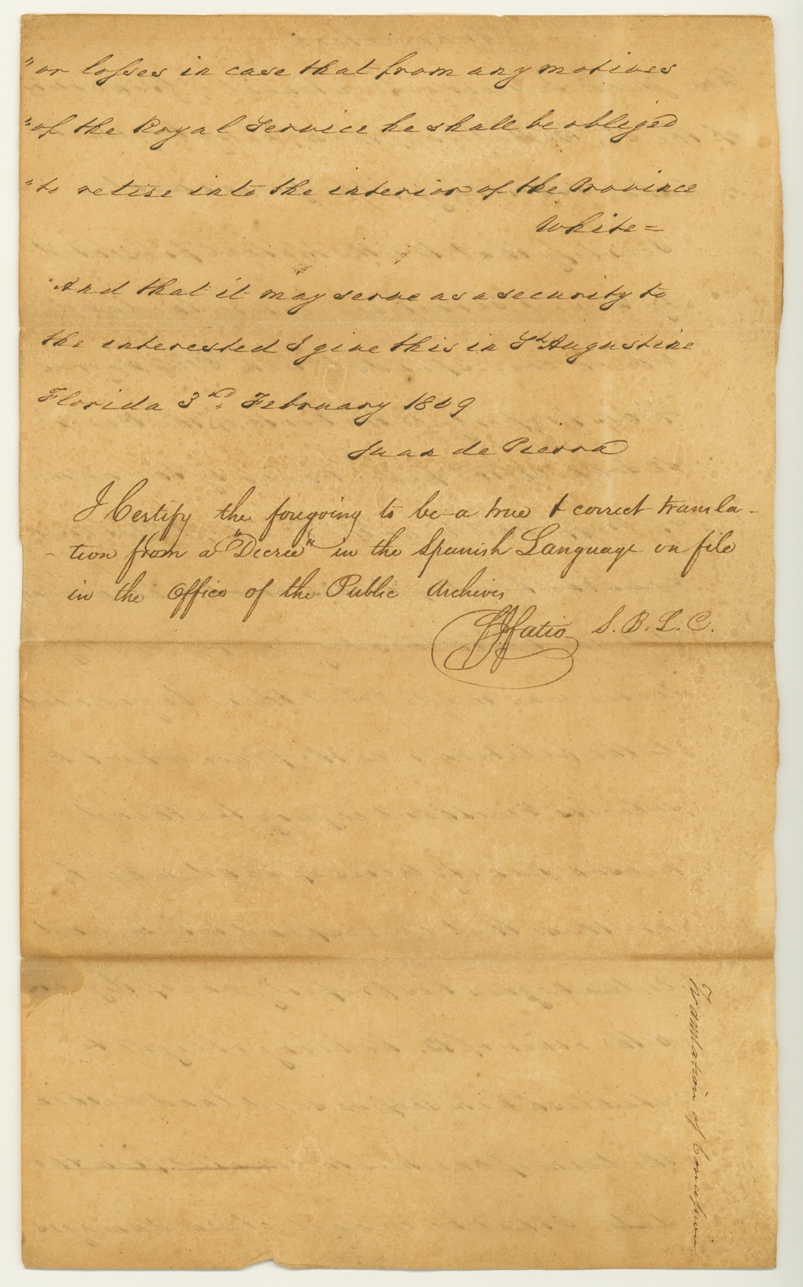 "or losses in case that from any motives
"of the Royal Service he shall be obliged
"to retire into the interior of the Province
White=
And that it may serve as a security to
the interested I give this in St Augustine
Florida 3rd. February 1809
Juan de Pierra
I Certify the foregoing to be a true & correct transla-
-tion from a "Decree" in the Spanish Language on file
in the Office of the Public Archives
Fatio S. B. L. C.
Translation of